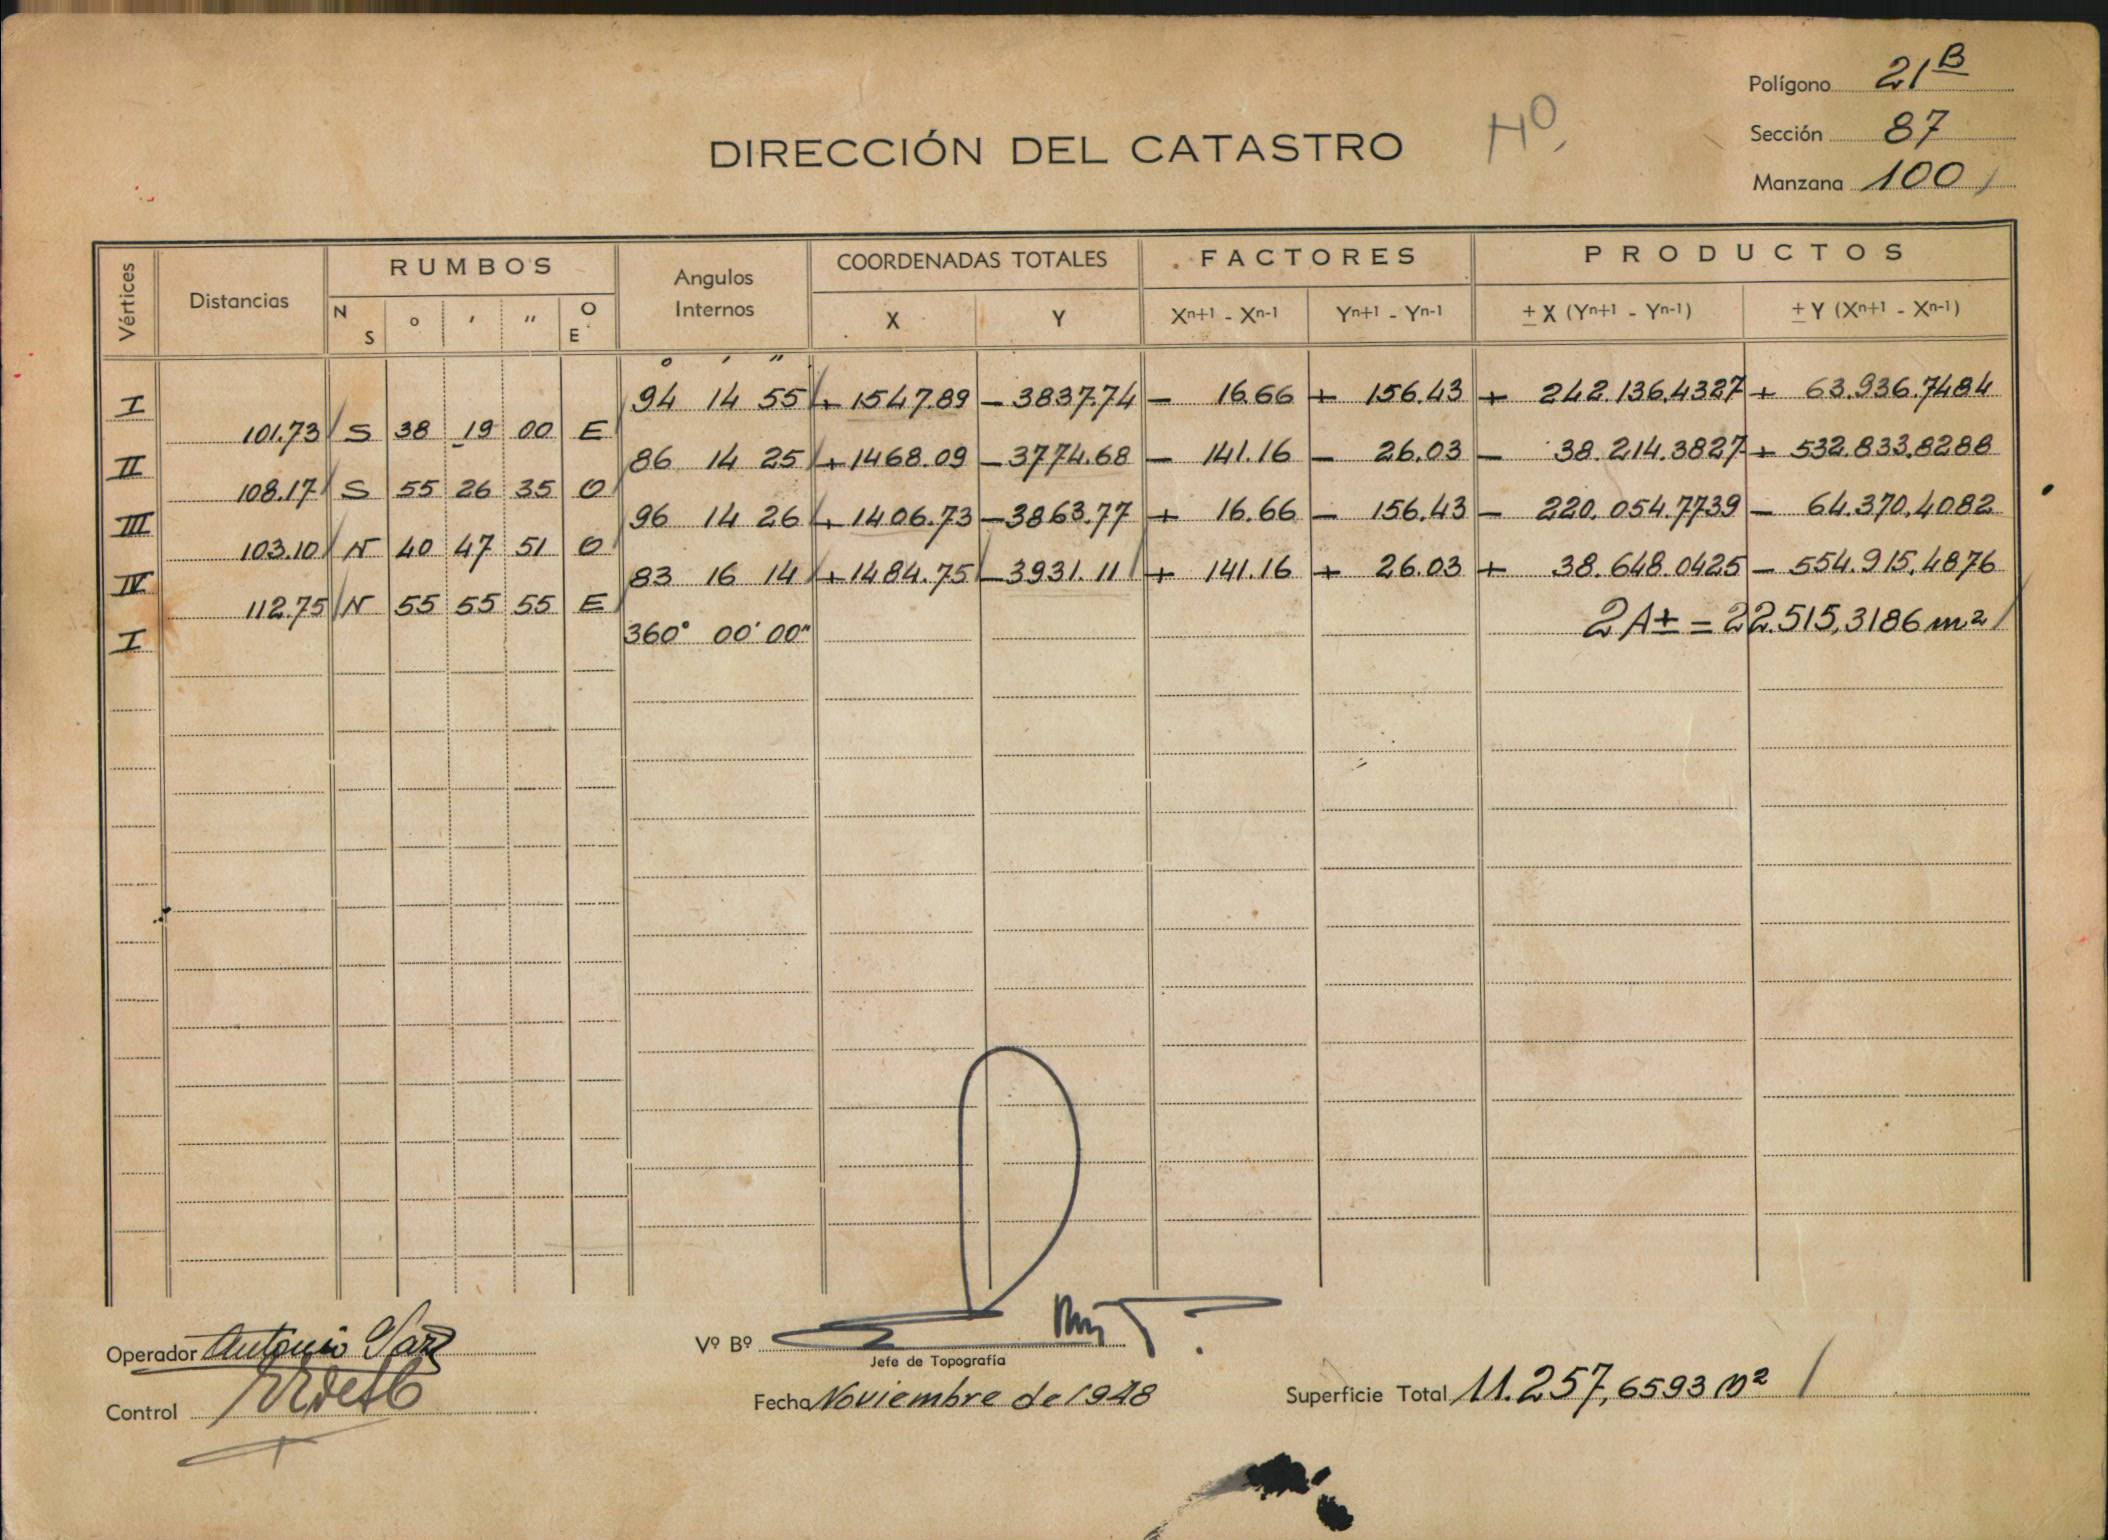 Polígono 21B
DIRECCIÓN DEL CATASTRO Hº.
Sección 87
Manzana 100
Vértices Distancias RUMBOS Angulos Internos COORDENADAS TOTALES FACTORES PRODUCTOS
N S o ' '' O E X Y Xn+1 - Xn-1 Yn+1 - Yn-1 ± X (Yn+1 - Yn-1) ± Y (Xn+1 - Xn-1)
o ' ''
I 94 14 55 + 1547.89 - 3837.74 - 16.66 + 156.43 + 242.136.4327 + 63.936.7484
101.73 S 38 19 00 E
II 86 14 25 + 1468.09 - 3774.68 - 141.16 - 26.03 - 38.214.3827 + 532.833.8288
108.17 S 55 26 35 O
III 96 14 26 + 1406.73 - 3863.77 + 16.66 - 156.43 - 220.054.7739 - 64.370.4082
103.10 N 40 47 51 O
IV 83 16 14 + 1484.75 - 3931.11 + 141.16 + 26.03 + 38.648.0425 - 554.915.4876
112.75 N 55 55 55 E
I 360° 00' 00" 2A± = 22.515,3186 m²
Operador Antonio
Vº Bº
Jefe de Topografía
Control
Fecha Noviembre de 1948
Superficie Total 11.257,6593 m²